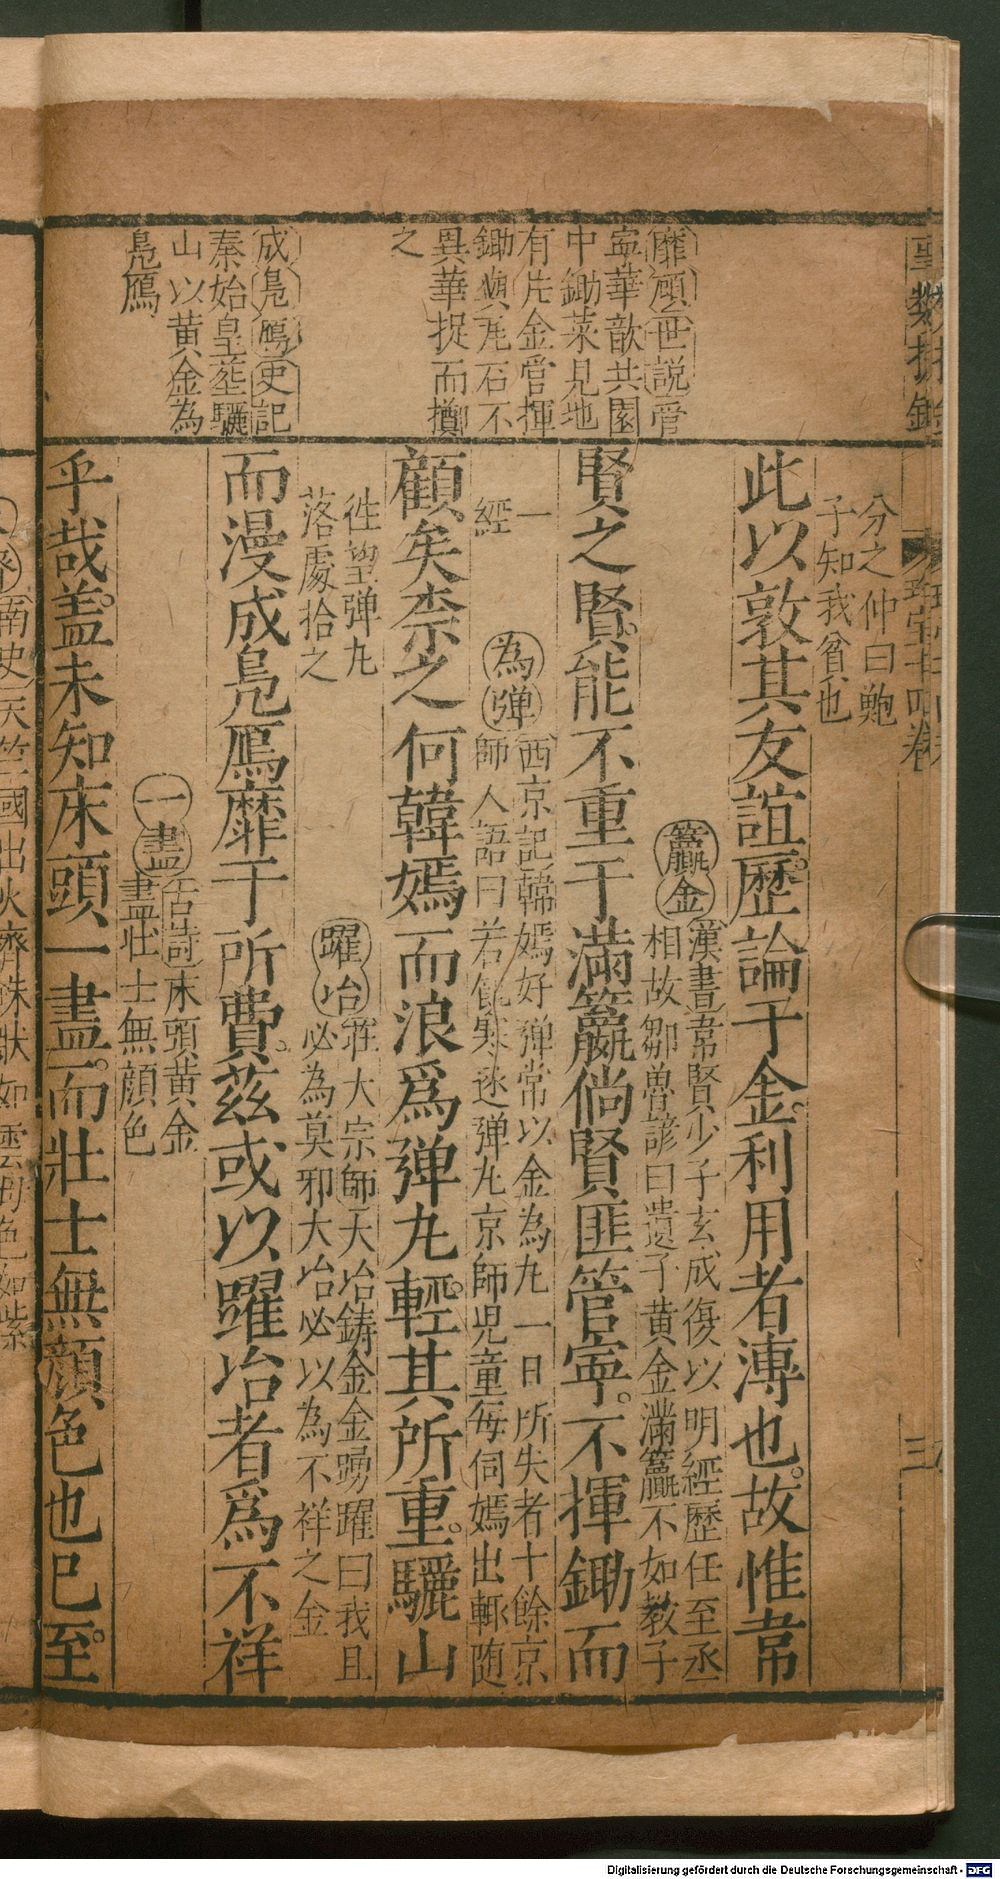 分之仲曰鮑
子知我貧也
此以敦其友誼歷論于金利用者溥也故惟韋
贏金漢書韋賢少子玄成復以明經歷任至丞
相故鄒魯諺曰遺子黃金滿籯不如教子
一
經
賢之賢能不重于滿籯倘賢匪管寧不揮鋤而
為弹西京記韓嫣好弹常以金為九一日所失者十餘京
師人語曰若飢寒逐弹九京師児童每伺嫣出輙随
徃望弹九
落處拾之
顧矣柰之何韓嫣而浪爲弹九輕其所重驪山
躍冶莊大宗師大冶鋳金金踴躍曰我且
必為莫邪大冶必以為不祥之金
而漫成鳬鴈靡于所費茲或以躍冶者爲不祥
一盡古詩床頭黄金
盡壯士無顔色
乎哉盖未知床頭一盡而壯士無顔色也已至
靡顧世説管
寧華歆共園
中鋤菜見地
有片金管揮
鋤與瓦石不
異華捉而擲
之
成鳬鴈史記
秦始皇塟驪
山以黄金為
鳬鴈
南史天竺國出火齊珠狀如雲母色如紫
三
Digitalisierung gefördert durch die Deutsche Forschungsgemeinschaft - DFG